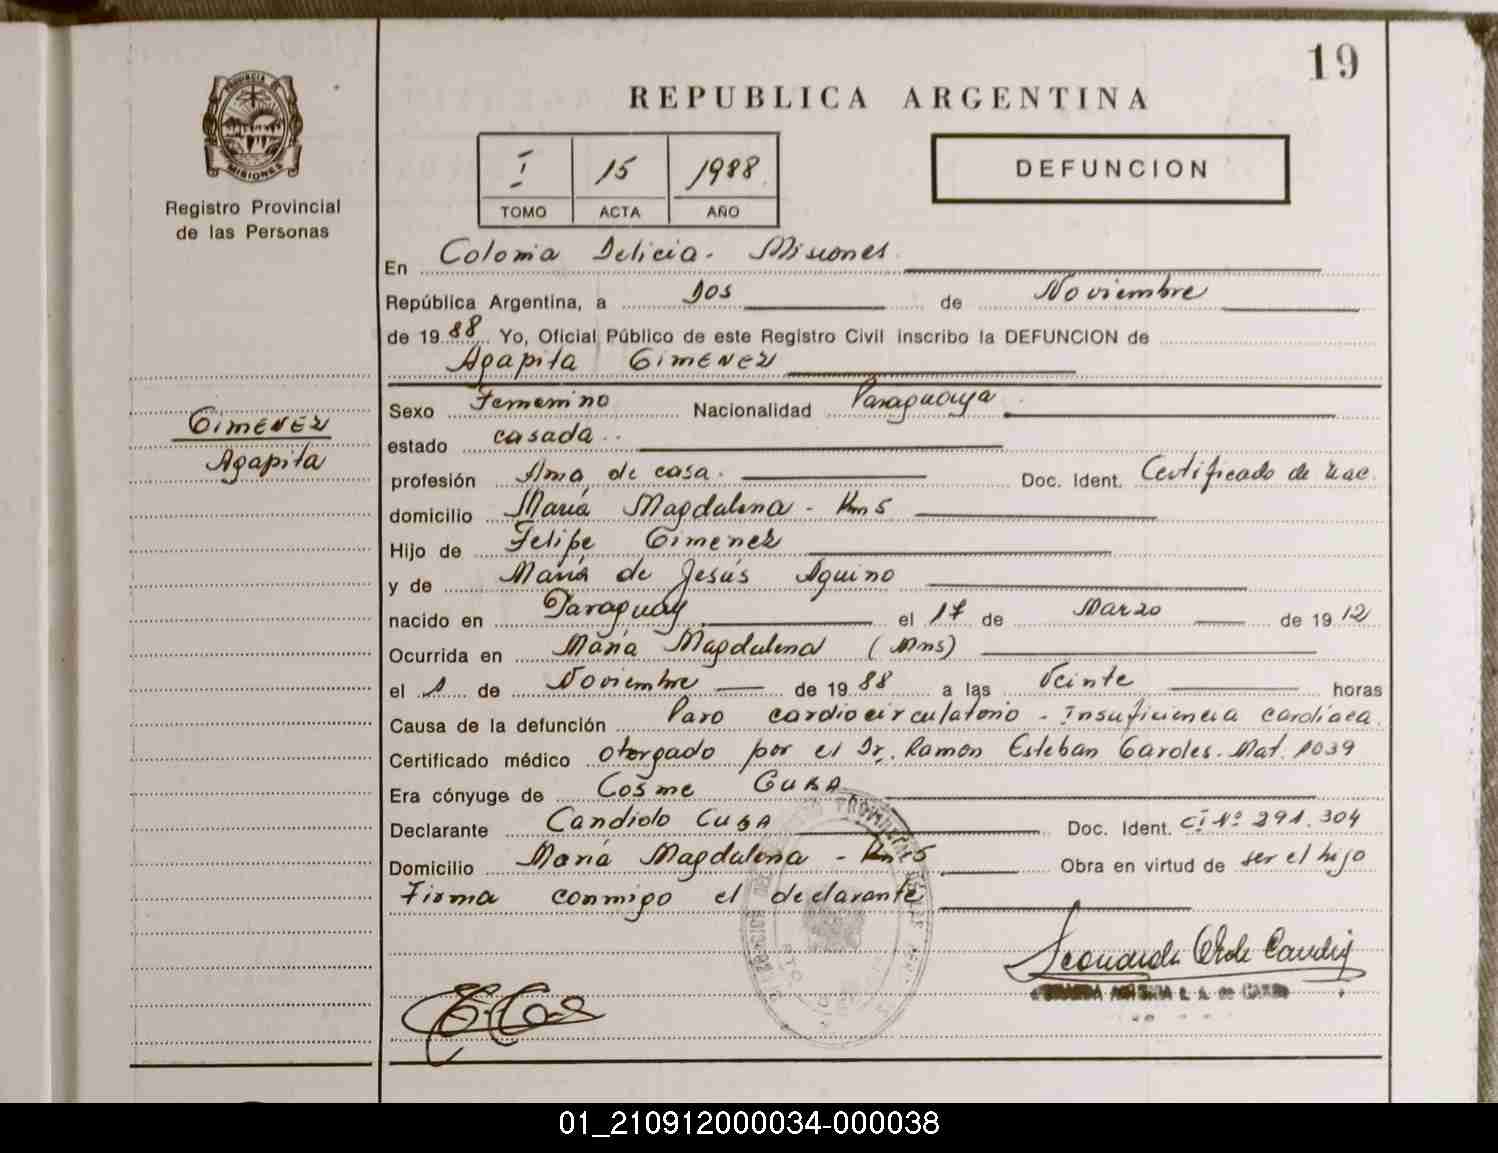 19
REPUBLICA ARGENTINA
PROVINCIA DE
MISIONES
Registro Provincial
de las Personas
I 15 1988
TOMO ACTA AÑO
DEFUNCION
En Colonia Delicia. Misiones
República Argentina, a Dos de Noviembre
de 19 88 Yo, Oficial Público de este Registro Civil inscribo la DEFUNCION de
Agapita GIMENEZ
GIMENEZ
Agapita
Sexo Femenino Nacionalidad Paraguaya
estado casada
profesión Ama de casa. Doc. Ident. Certificado de nac.
domicilio María Magdalena - Km 5
Hijo de Felipe Gimenez
y de María de Jesús Aquino
nacido en Paraguay el 17 de Marzo de 19 12
Ocurrida en María Magdalena (Mns)
el 1 de Noviembre de 19 88 a las Veinte horas
Causa de la defunción Paro cardiocirculatorio - Insuficiencia cardíaca.
Certificado médico otorgado por el Dr. Ramón Esteban Caroles. Mat. 1039
Era cónyuge de Cosme CUBA
Declarante Candido CUBA Doc. Ident. CI Nº 291.304
Domicilio María Magdalena - Km 5 Obra en virtud de ser el hijo
Firma conmigo el declarante
01_210912000034-000038